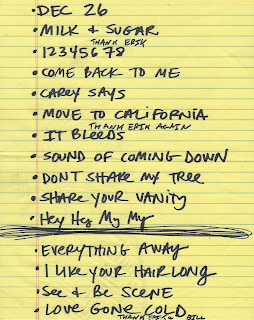 • DEC 26
• MILK & SUGAR
THANK ERIK
• 12345678
• COME BACK TO ME
• CAREY SAYS
• MOVE TO CALIFORNIA
THANK ERIK AGAIN
• IT BLEEDS
• SOUND OF COMING DOWN
• DONT SHAKE MY TREE
• SHARE YOUR VANITY
• Hey Hey My My
• EVERYTHING AWAY
• I LIKE YOUR HAIR LONG
• See & Be SCENE
• LOVE GONE COLD
THANK ERIK & BILL